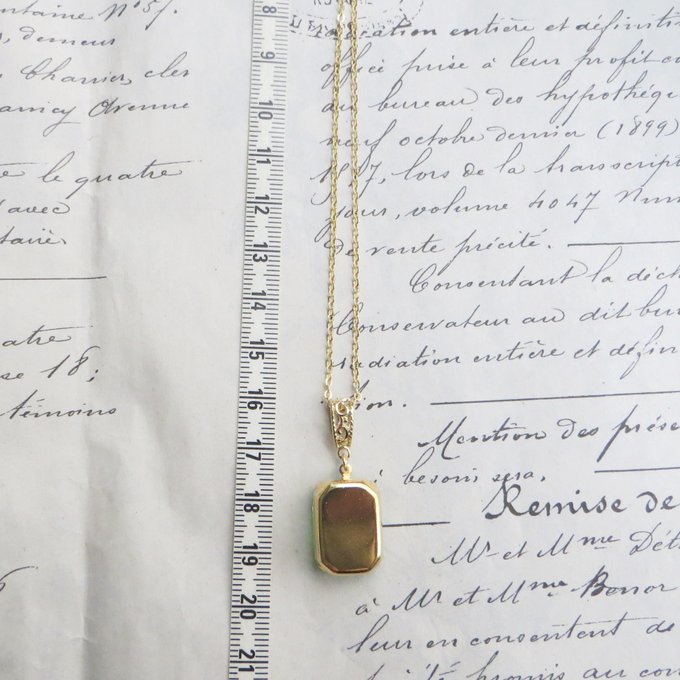 ntaine N° 57.
s, demeur
Charrier, cler
Avenue
te le quatre
avec
taire
atre
se 18;
témoins
8
9
10
11
12
13
14
15
16
17
18
19
20
21
cation entière et définiti
office prise à leur profit
au bureau des hypothéq
neuf octobre dernier (1899)
lors de la transcript
volume 4047 Num
de vente précité.
Consentant la déch
Conservateur au dit bur
radiation entière et défin
tion.
Mention des prése
besoin sera.
Remise de
Mr et Mme Dét
à Mr et Mme
leur en consentent de
promis au con